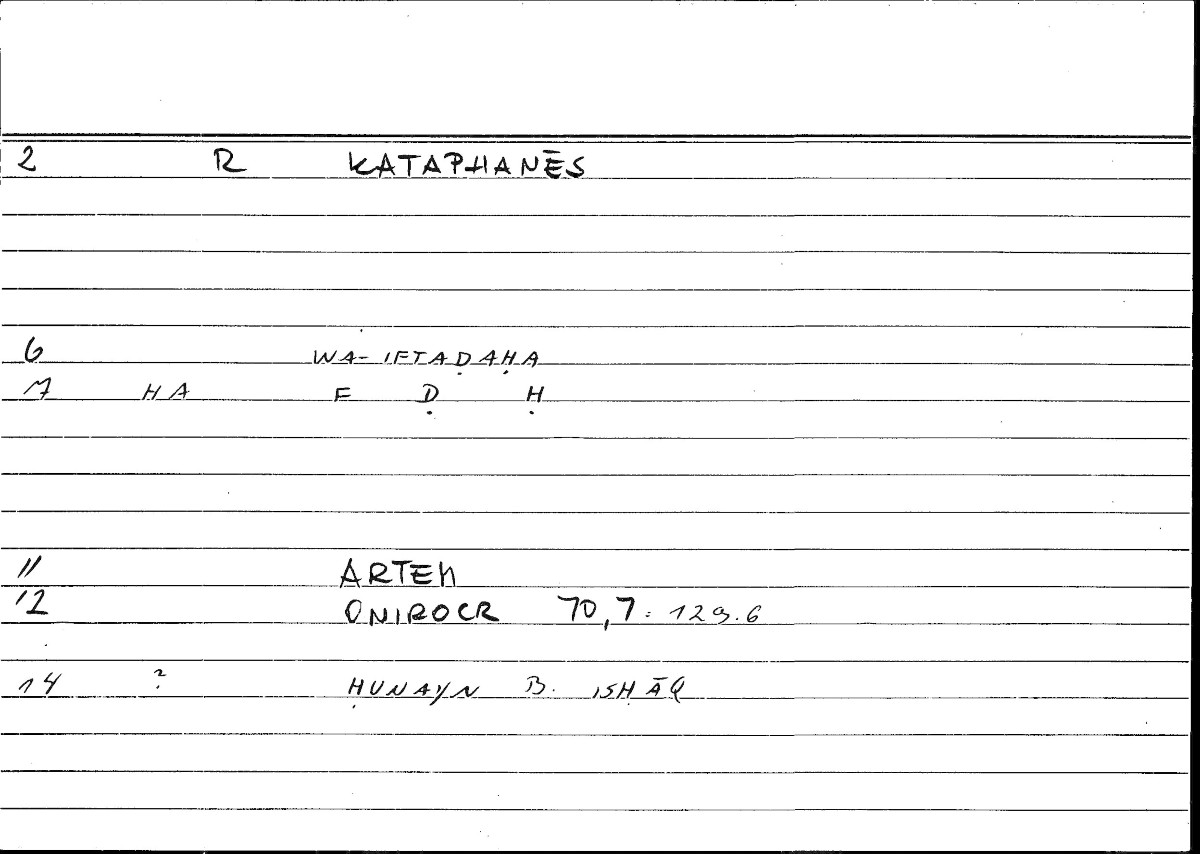 2 R KATAPHANĒS
6 WA-IFTAḌAḤA
7 HA F Ḍ Ḥ
11 ARTEM
12 ONIROCR 70,7: 129.6
14 ? ḤUNAYN B. ISḤĀQ